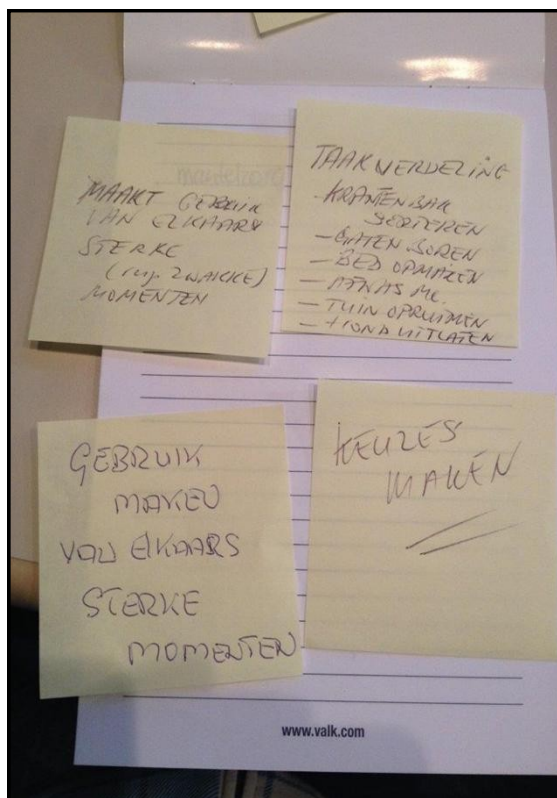 MAAKT GEBRUIK
VAN ELKAARS
STERKE
ZWAKKE)
MOMENTEN
TAAKVERDELING
- KRANTENBAK
SORTEREN
- GATEN BOREN
- BED OPMAKEN
- TUIN OPRUIMEN
- HOND UITLATEN
GEBRUIK
MAKEN
VAN ELKAARS
STERKE
MOMENTEN
KEUZES
MAKEN
www.valk.com